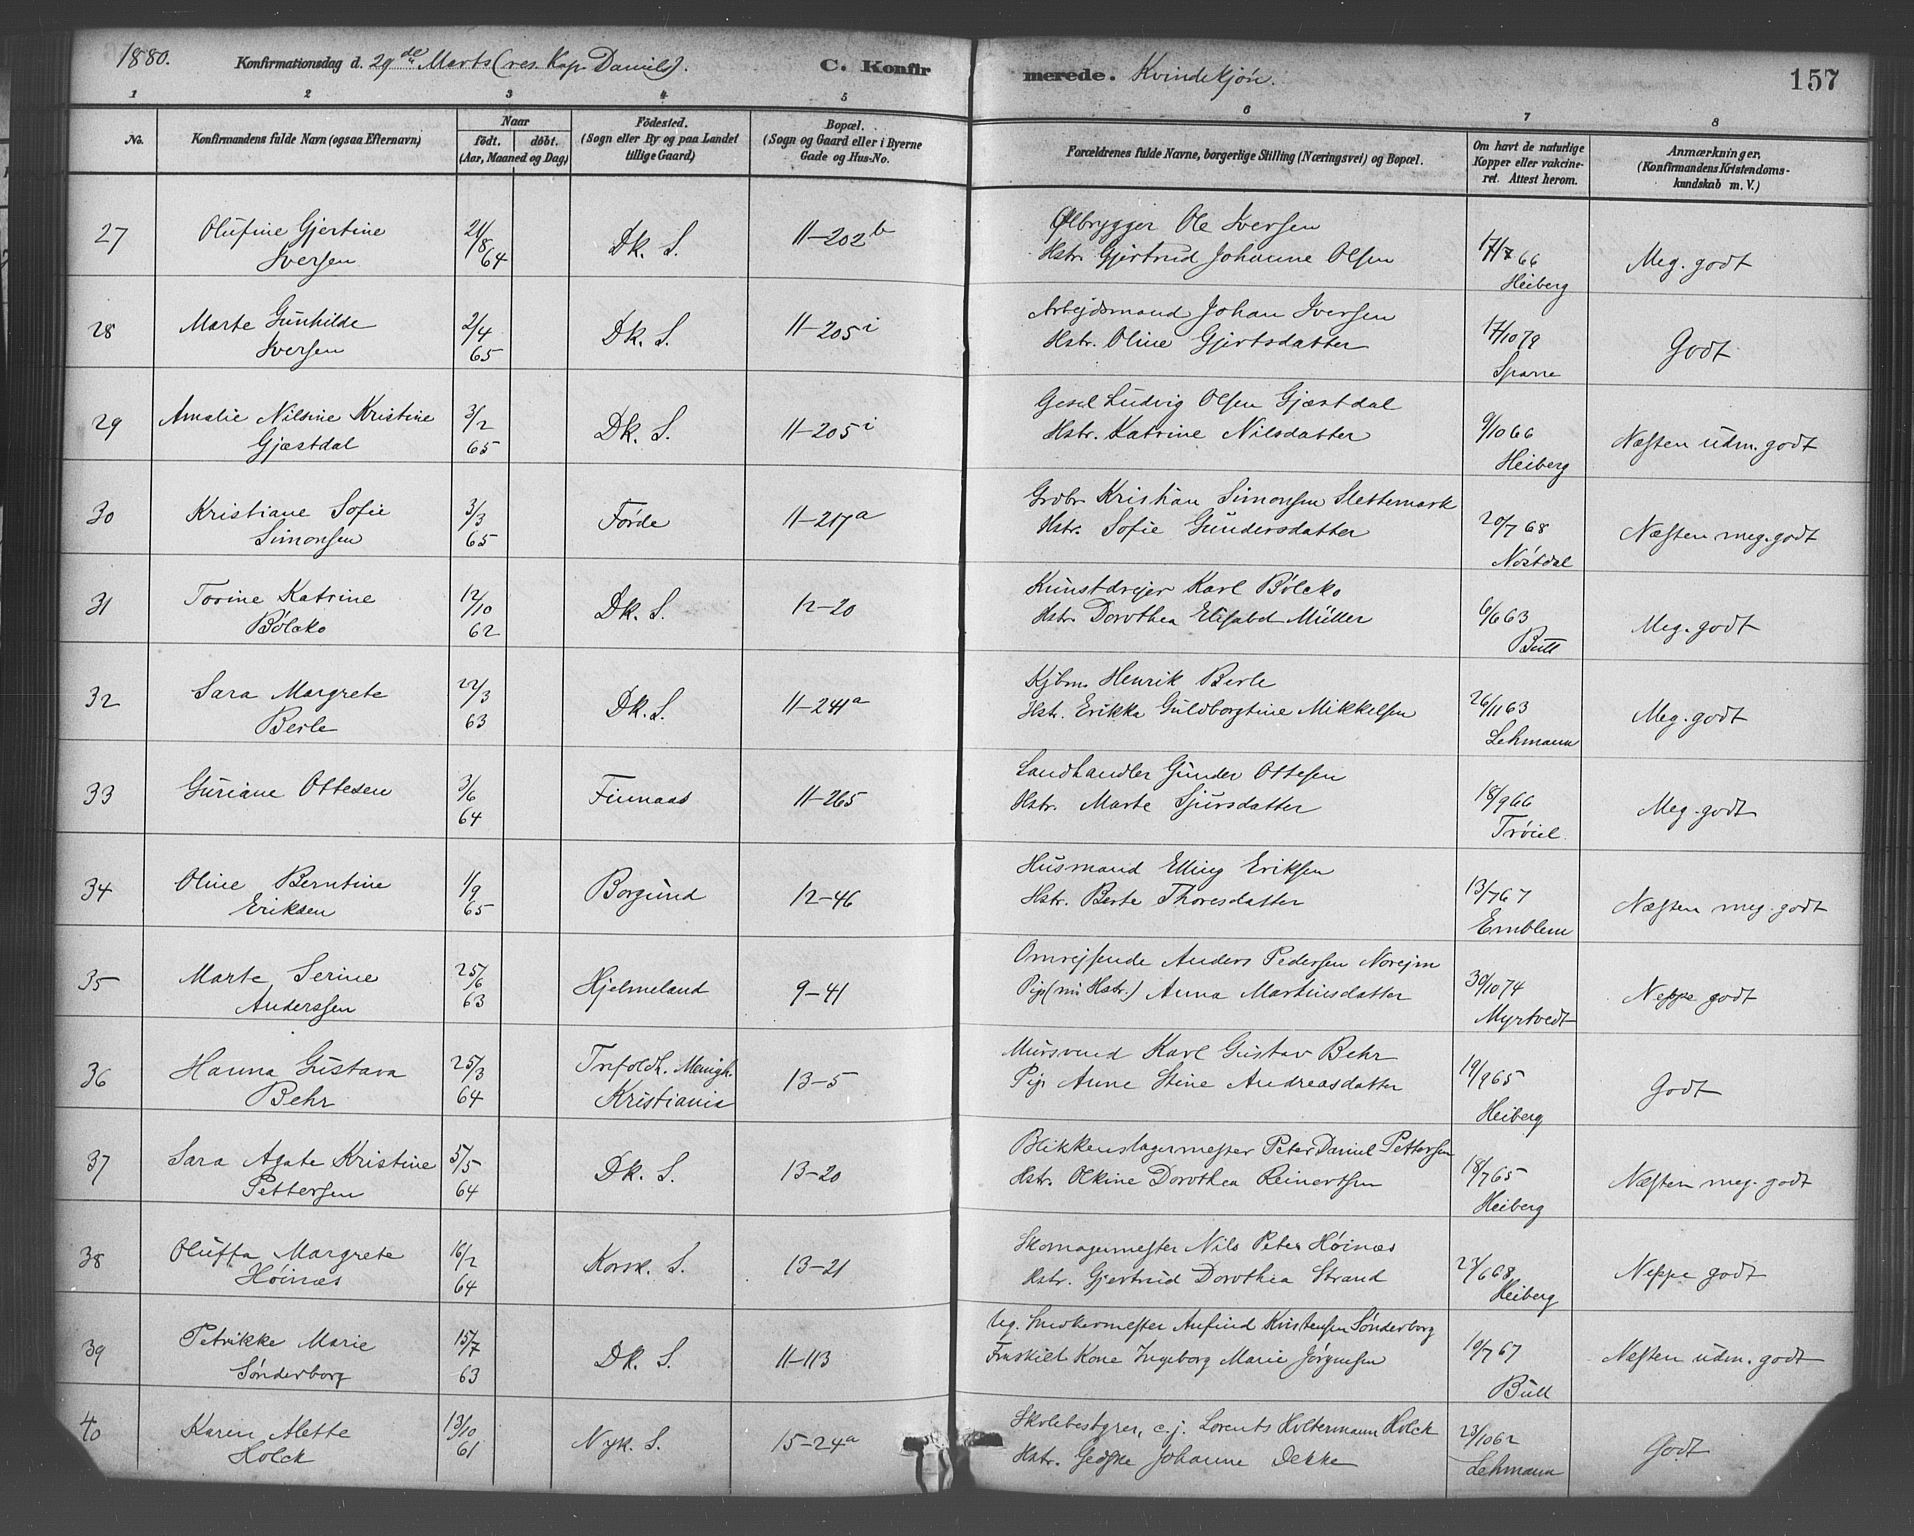 1880. Konfirmationsdag d. 29de Marts (res. Kap. Daniels). C. Konfirmerede. Kvindekjøn. 157
1 2 3 4 5 6 7 8
No. Konfirmandens fulde Navn (ogsaa Efternavn) Naar födt. döbt. (Aar, Maaned og Dag) Födested. (Sogn eller By og paa Landet tillige Gaard) Bopæl. (Sogn og Gaard eller i Byerne Gade og Hus-No. Forældrenes fulde Navne, borgerlige Stilling (Næringsvei) og Bopæl. Om havt de naturlige Kopper eller vakcineret. Attest herom. Anmærkninger. (Konfirmandens Kristendomskundskab m. V.)
27 Olufine Gjertine Iversen 21/8 64 Dk. S. 11-202b Ølbrygger Ole Iversen
Hstr. Gjertrud Johanne Olsen 17/7 66 Heiberg Meg. godt
28 Marte Gunhilde Iversen 2/4 65 Dk. S. 11-205i Arbejdsmand Johan Iversen
Hstr. Oline Gjertsdatter 17/10 79 Sparre Godt
29 Amalie Nilsine Kristine Gjæstdal 3/2 65 Dk. S. 11-205i Gesel Ludvig Olsen Gjæstdal
Hstr. Katrine Nilsdatter 9/10 66 Heiberg Næsten udm. godt
30 Kristiane Sofie Simonsen 3/3 65 Førde 11-217a Grdbr. Kristian Simonsen Slettemark
Hstr. Sofie Gundersdatter 20/7 68 Nøstdal Næsten meg. godt
31 Torine Katrine Bølcko 12/10 62 Dk. S. 12-20 Kunstdrejer Karl Bølcko
Hstr. Dorothea Elisabet Müller 6/6 63 Bull Meg. godt
32 Sara Margrete Berle 22/3 63 Dk. S. 11-241a Kjbm. Henrik Berle
Hstr. Erikka Guldborgtine Mikkelsen 26/11 63 Lehmann Meg. godt
33 Guriane Ottesen 3/6 64 Finnaas 11-265 Landhandler Gunder Ottesen
Hstr. Marte Sjursdatter 18/9 66 Trøiel. Meg. godt
34 Oline Berntine Eriksen 1/9 65 Borgund 12-46 Husmand Elling Eriksen
Hstr. Berte Thoresdatter 13/7 67 Emblem Næsten meg. godt
35 Marte Serine Anderssen 25/6 63 Hjelmeland 9-41 Omrejsende Anders Pedersen Norejm
Pige (nu Hstr.) Anna Martinsdatter 30/10 74 Myrtvedt Neppe godt
36 Hanna Gustava Behr 25/3 64 Trefoldh. Menigh. Kristiania 13-5 Mursvend Karl Gustav Behr
Pige Anne Stine Andreasdatter 19/9 65 Heiberg Godt
37 Sara Agate Kristine Pettersen 5/5 64 Dk. S. 13-20 Blikkenslagermester Peter Daniel Pettersen
Hstr. Olkine Dorothea Reinertsen 18/7 65 Heiberg Næsten meg. godt
38 Oluffa Margrete Høinæs 16/2 64 Korsk. S. 13-21 Skomagermester Nils Peter Høinæs
Hstr. Gjertrud Dorothea Strand 27/6 68 Heiberg Neppe godt
39 Petrikke Marie Sønderborg 15/7 63 Dk. S. 11-113 Ug. Snedkermester Anfind Kristensen Sønderborg
Fraskilt Kone Ingeborg Marie Jørgensen 19/7 67 Bull Næsten udm. godt
40 Karen Alette Holck 13/10 61 Nyk. S. 15-24a Skolebestyrer, c.j. Lorents Holtermann Holck
Hstr. Gedske Johanne Dekke 23/10 62 Lehmann Godt